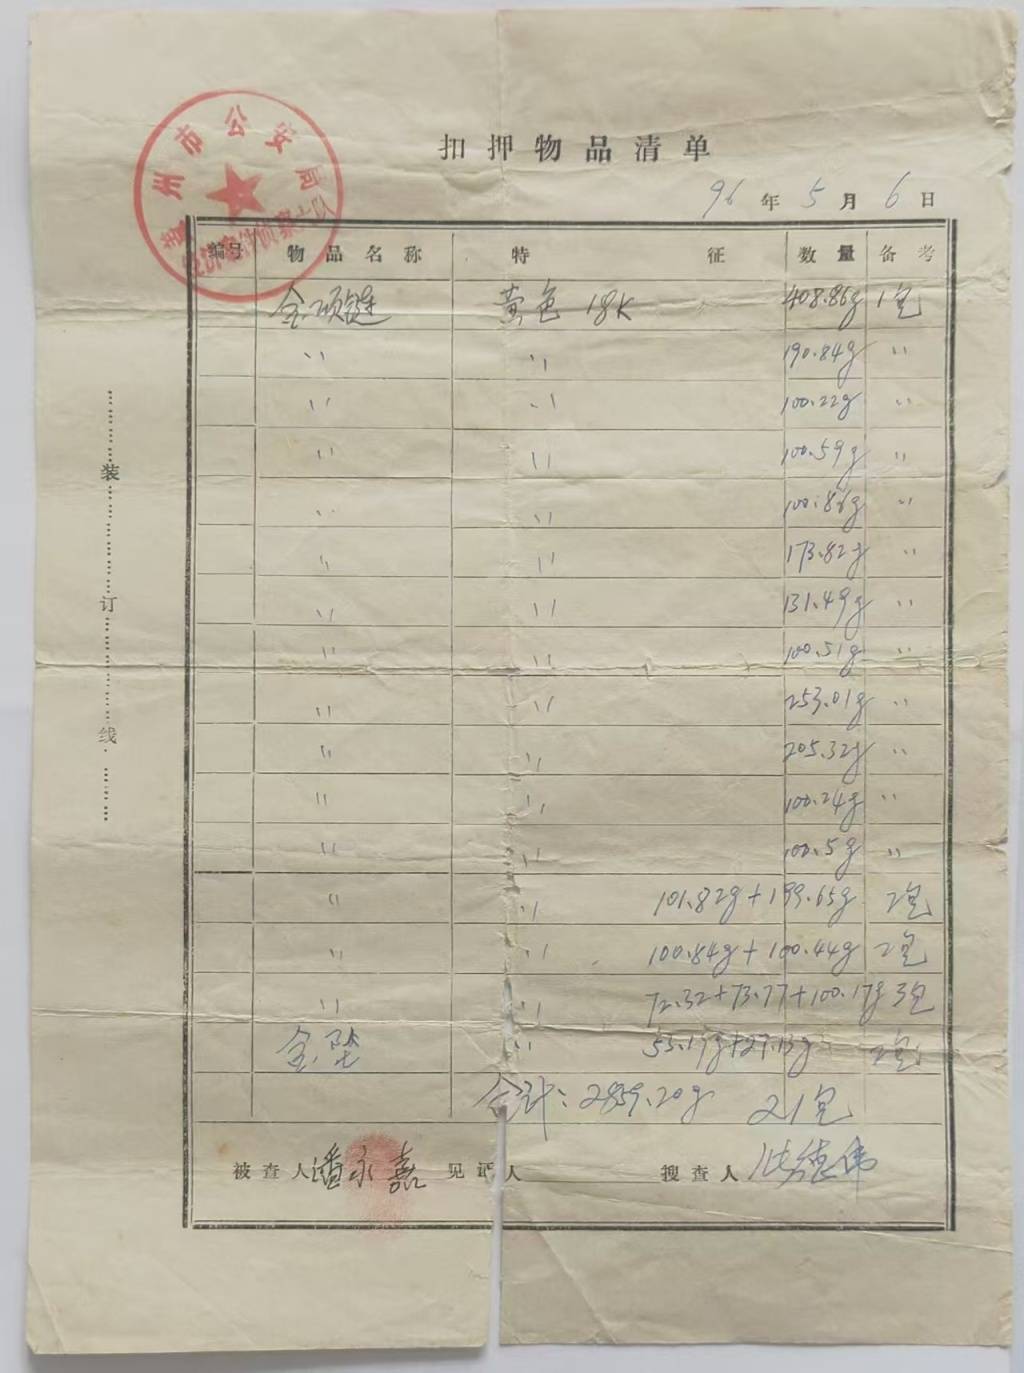 扣押物品清单
96年5月6日
州市公安局
编号 物品名称 特征 数量 备考
金项链 黄色 18K 408.86g 1包
〃 〃 190.84g 〃
〃 〃 100.22g 〃
〃 〃 100.59g 〃
〃 〃 100.86g 〃
〃 〃 173.82g 〃
〃 〃 131.49g 〃
〃 〃 100.51g 〃
〃 〃 253.01g 〃
〃 〃 205.32g 〃
〃 〃 100.24g 〃
〃 〃 100.5g 〃
〃 〃 101.82g+199.65g 2包
〃 〃 100.84g+100.44g 2包
〃 〃 72.32+73.77+100.17g 3包
金坠 〃 55.17g+27.13g 2包
合计:2859.20g 21包
被查人 潘永嘉 见证人 搜查人 德伟
装订线